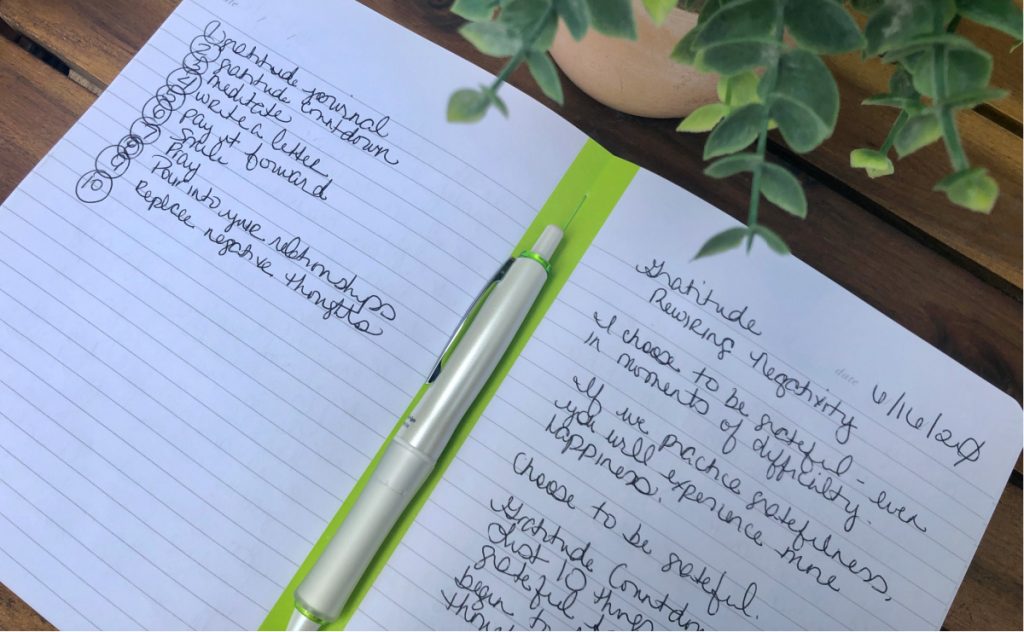 date
1 Gratitude journal
2 Gratitude Countdown
Meditate
write a letter
pay it forward
Smile
Pray
Pour into your relationships
10 Replace negative thoughts
date 6/16/20
Gratitude
Rewiring Negativity
I choose to be grateful - even
in moments of difficulty.
If we practice gratefulness,
you will experience more
happiness.
Choose to be grateful.
Gratitude Countdow
List 10 things
grateful
begin to